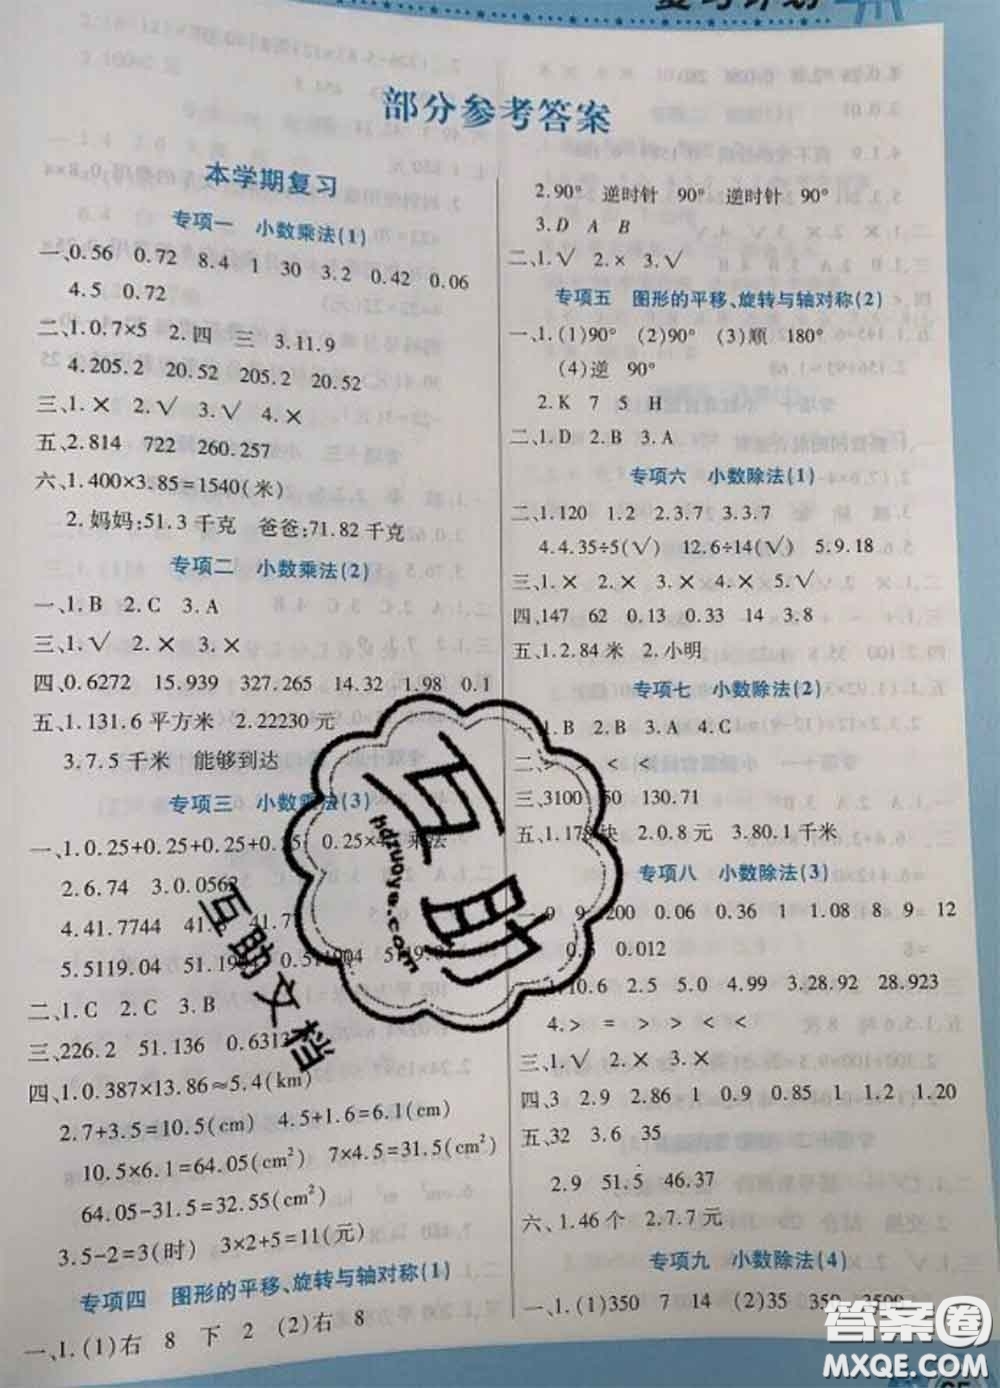 复习计划
部分参考答案
本学期复习
专项一 小数乘法(1)
一、0.56 0.72 8.4 1 30 3.2 0.42 0.06
4.5 0.72
二、1.0.7×5 2.四 三 3.11.9
4.205.2 20.52 205.2 20.52
三、1.× 2.√ 3.√ 4.×
五、2.814 722 260.257
六、1.400×3.85=1540(米)
2.妈妈:51.3千克 爸爸:71.82千克
专项二 小数乘法(2)
一、1.B 2.C 3.A
三、1.√ 2.× 3.×
四、0.6272 15.939 327.265 14.32 1.98 0.1
五、1.131.6平方米 2.22230元
3.7.5千米 能够到达
专项三 小数乘法(3)
一、1.0.25+0.25+0.25+0.25 0.25×4 乘法
2.6.74 3.0.0562
4.41.7744 41.77 41.7
5.5119.04 51.1904 0.511904 5119.04
二、1.C 2.C 3.B
三、226.2 51.136 0.6312
四、1.0.387×13.86≈5.4(km)
2.7+3.5=10.5(cm) 4.5+1.6=6.1(cm)
10.5×6.1=64.05(cm²) 7×4.5=31.5(cm²)
64.05-31.5=32.55(cm²)
3.5-2=3(时) 3×2+5=11(元)
专项四 图形的平移、旋转与轴对称(1)
一、1.(1)右 8 下 2 (2)右 8
2.90° 逆时针 90° 逆时针 90°
3.D A B
二、1.√ 2.× 3.√
专项五 图形的平移、旋转与轴对称(2)
一、1.(1)90° (2)90° (3)顺 180°
(4)逆 90°
2.K 7 5 H
二、1.D 2.B 3.A
专项六 小数除法(1)
二、1.120 1.2 2.3.7 3.3.7
4.4.35÷5(√) 12.6÷14(√) 5.9.18
三、1.× 2.× 3.× 4.× 5.√
四、147 62 0.13 0.33 14 3.8
五、1.2.84米 2.小明
专项七 小数除法(2)
一、1.B 2.B 3.A 4.C
二、> > < <
三、3100 50 130.71
五、1.178块 2.0.8元 3.80.1千米
专项八 小数除法(3)
一、9 9 200 0.06 0.36 1 1.08 8 9 12
0.012
1.10.6 2.5 5.0 4.99 3.28.92 28.923
4.> = > > < <
三、1.√ 2.× 3.×
四、3 2.9 2.86 1 0.9 0.85 1 1.2 1.20
五、32 3.6 35
2.9 51.5 46.37
六、1.46个 2.7.7元
专项九 小数除法(4)
一、1.(1)350 7 14 (2)35 350 3500
互助
hdzuoye.com
互助文档
答案圈
MXQE.COM